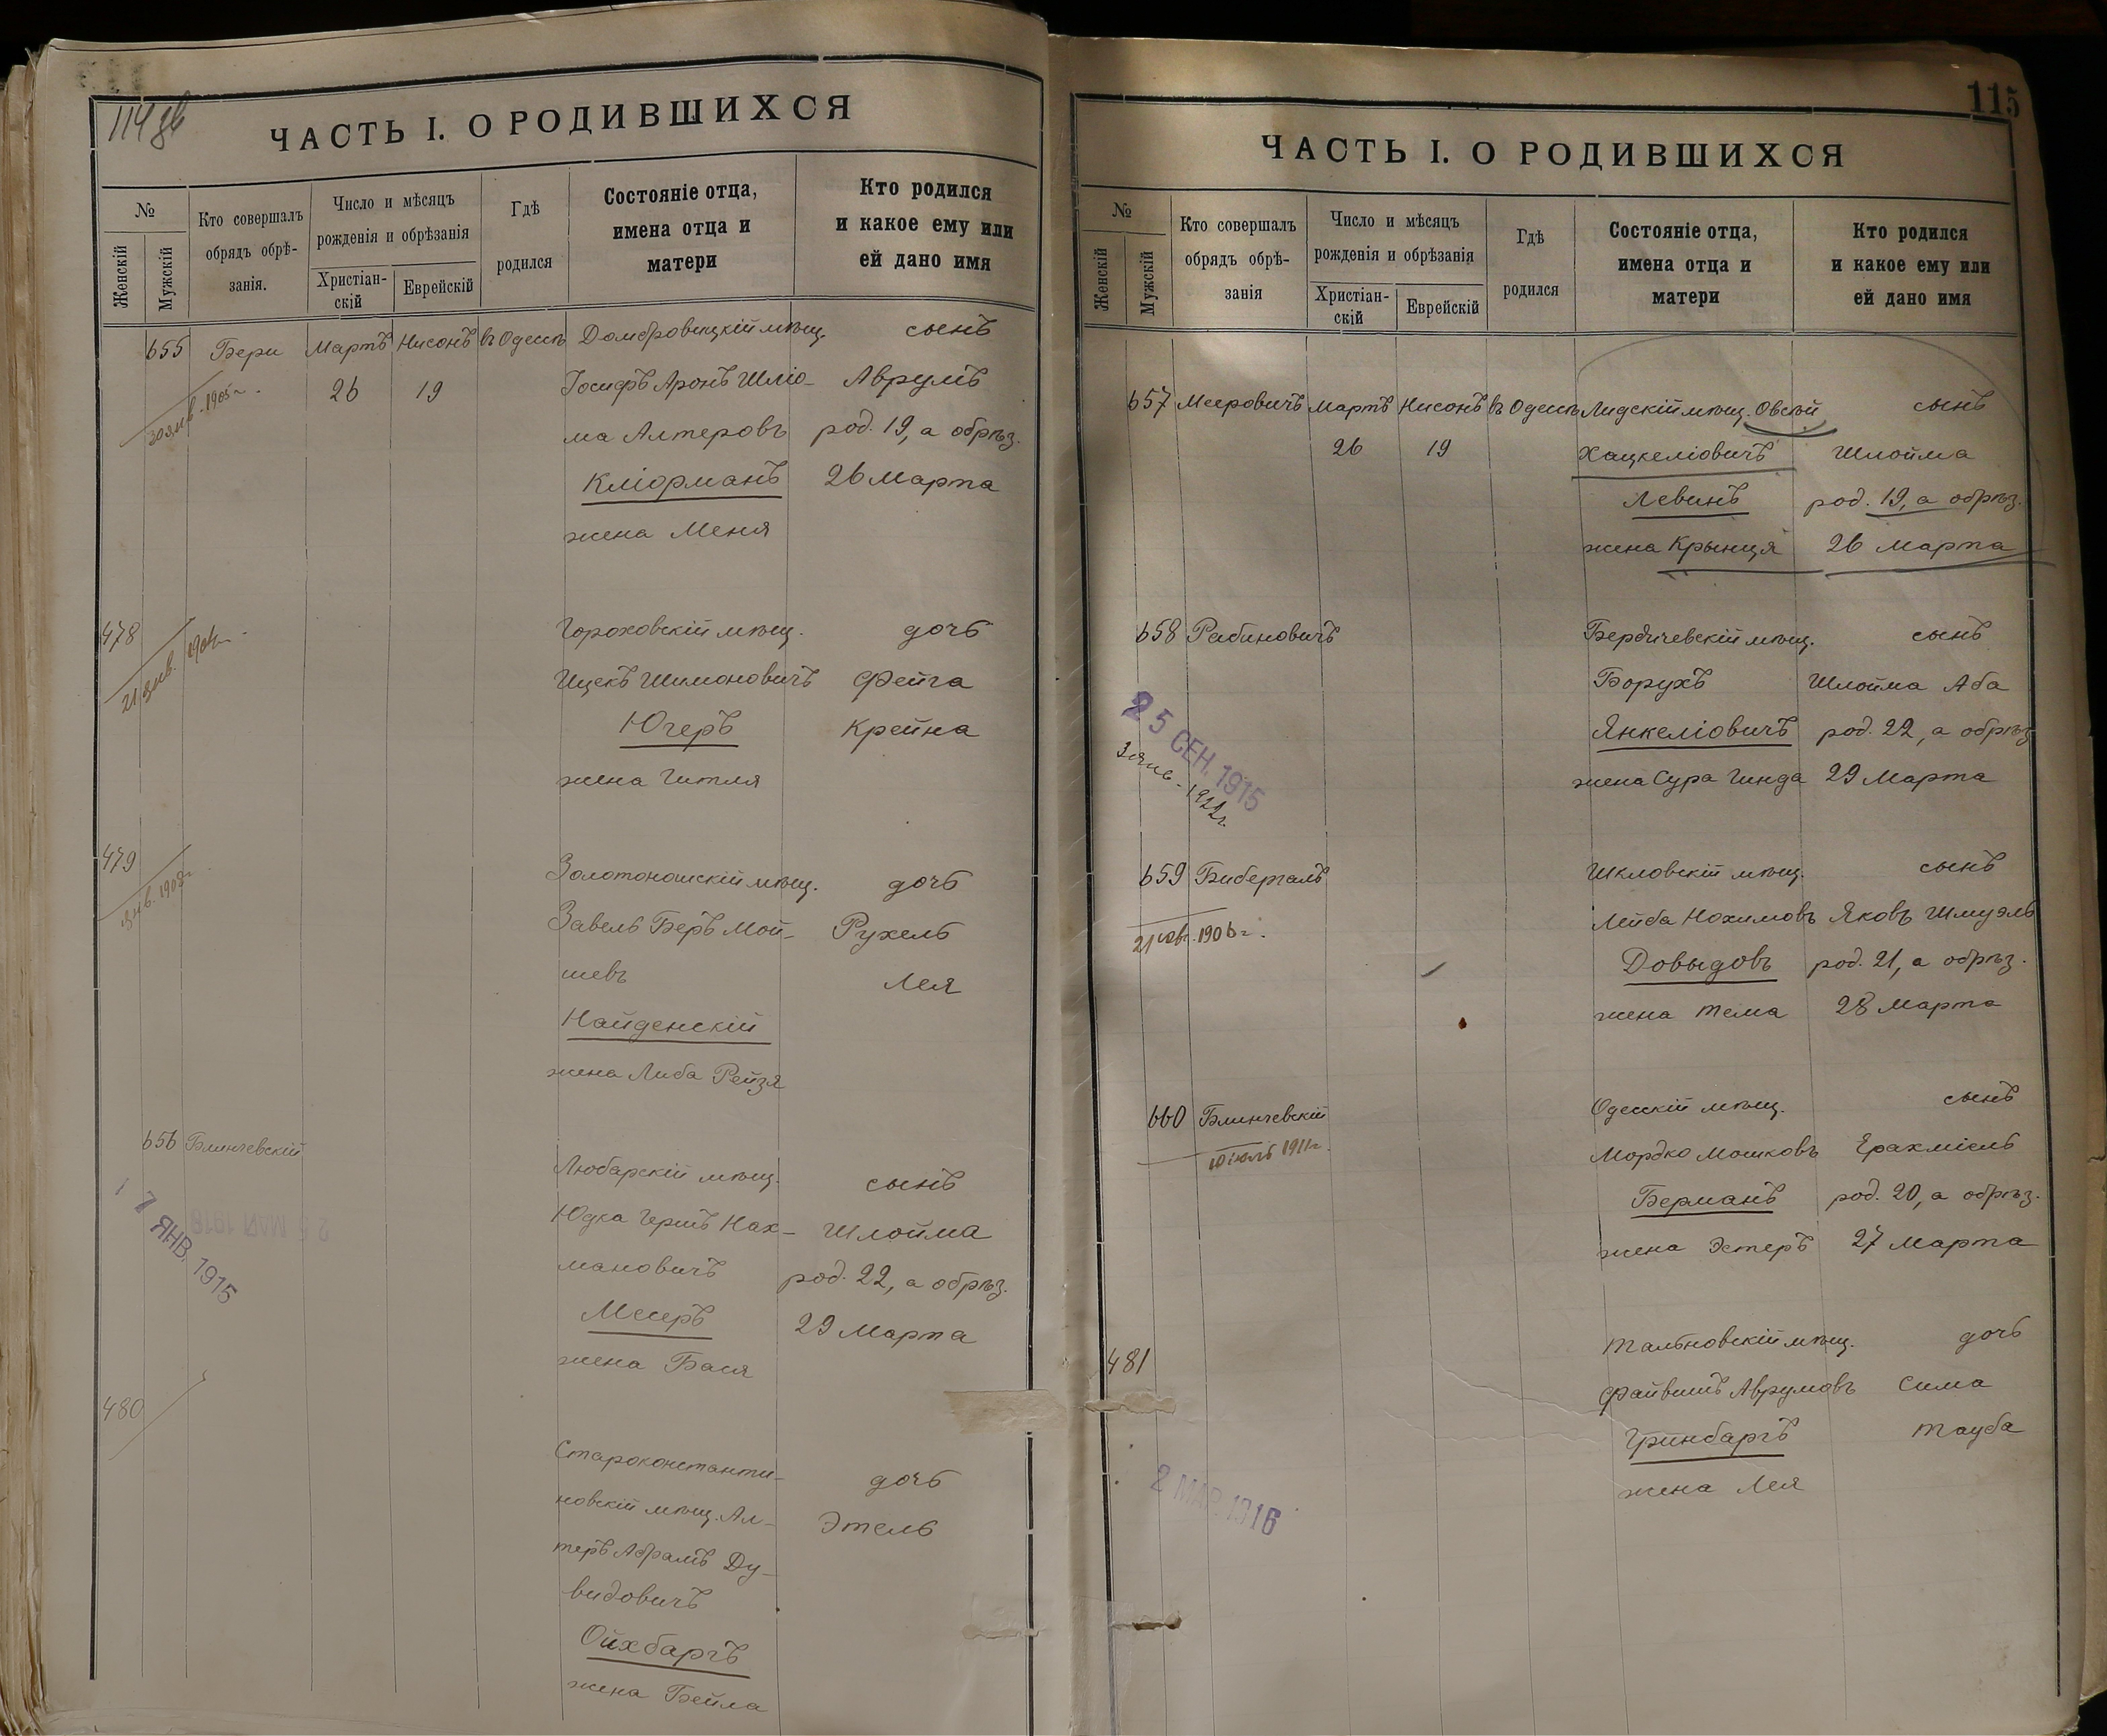 114 об
ЧАСТЬ I. О РОДИВШИХСЯ
№
Женскій
Мужскій
Кто совершалъ
обрядъ обрѣ-
занія.
Число и мѣсяцъ
рожденія и обрѣзанія
Христіан-
скій
Еврейскій
Гдѣ
родился
Состояніе отца,
имена отца и
матери
Кто родился
и какое ему или
ей дано имя
655 Бери Мартъ Нисонъ въ Одессѣ Домбровицкій мѣщ. сынъ
30 янв. 1905 г. 26 19 Іосифъ Аронъ Шліо- Аврумъ
ма Алтеровъ род. 19, а обрѣз.
Кліорманъ 26 Марта
жена Меня
478 Гороховскій мѣщ. дочь
21 янв. 1904 г. Ицекъ Шимоновичъ Фейга
Югеръ Крейна
жена Гитля
479 Золотоношскій мѣщ. дочь
янв. 1908 г. Завель Беръ Мой- Рухель
шевъ Лея
Найденскій
жена Либа Рейзя
656 Блинчевскій Любарскій мѣщ. сынъ
25 МАЯ 1918
17 ЯНВ. 1915
Юдка Гершъ Нах- Шлойма
мановичъ род. 22, а обрѣз.
Месеръ 29 Марта
жена Бася
480 Староконстанти- дочь
новскій мѣщ. Ал- Этель
теръ Абрамъ Ду-
видовичъ
Ойхбаргъ
жена Бейла
115
ЧАСТЬ I. О РОДИВШИХСЯ
№
Женскій
Мужскій
Кто совершалъ
обрядъ обрѣ-
занія
Число и мѣсяцъ
рожденія и обрѣзанія
Христіан-
скій
Еврейскій
Гдѣ
родился
Состояніе отца,
имена отца и
матери
Кто родился
и какое ему или
ей дано имя
657 Мееровичъ Мартъ Нисонъ въ Одессѣ Лидскій мѣщ. Овсѣй сынъ
26 19 Хацкеліовичъ Шлойма
Левинъ род. 19, а обрѣз.
жена Крынця 26 Марта
658 Рабиновичъ Бердичевскій мѣщ. сынъ
Борухъ Шлойма Аба
25 СЕН. 1915 Янкеліовичъ род. 22, а обрѣз
1922 г. жена Сура Гинда 29 Марта
659 Бибергалъ Шкловскій мѣщ. сынъ
21 1906 г. Лейба Нохимовъ Яковъ Шмуэль
Довыдовъ род. 21, а обрѣз.
жена Тема 28 Марта
660 Блинчевскій Одесскій мѣщ. сынъ
1911 г. Мордко Мошковъ Ерахміель
Берманъ род. 20, а обрѣз.
жена Эстеръ 27 Марта
481 Тальновскій мѣщ. дочь
Файвишъ Аврумовъ Сима
Гринбаргъ Тауба
2 МАР. 1916 жена Лея